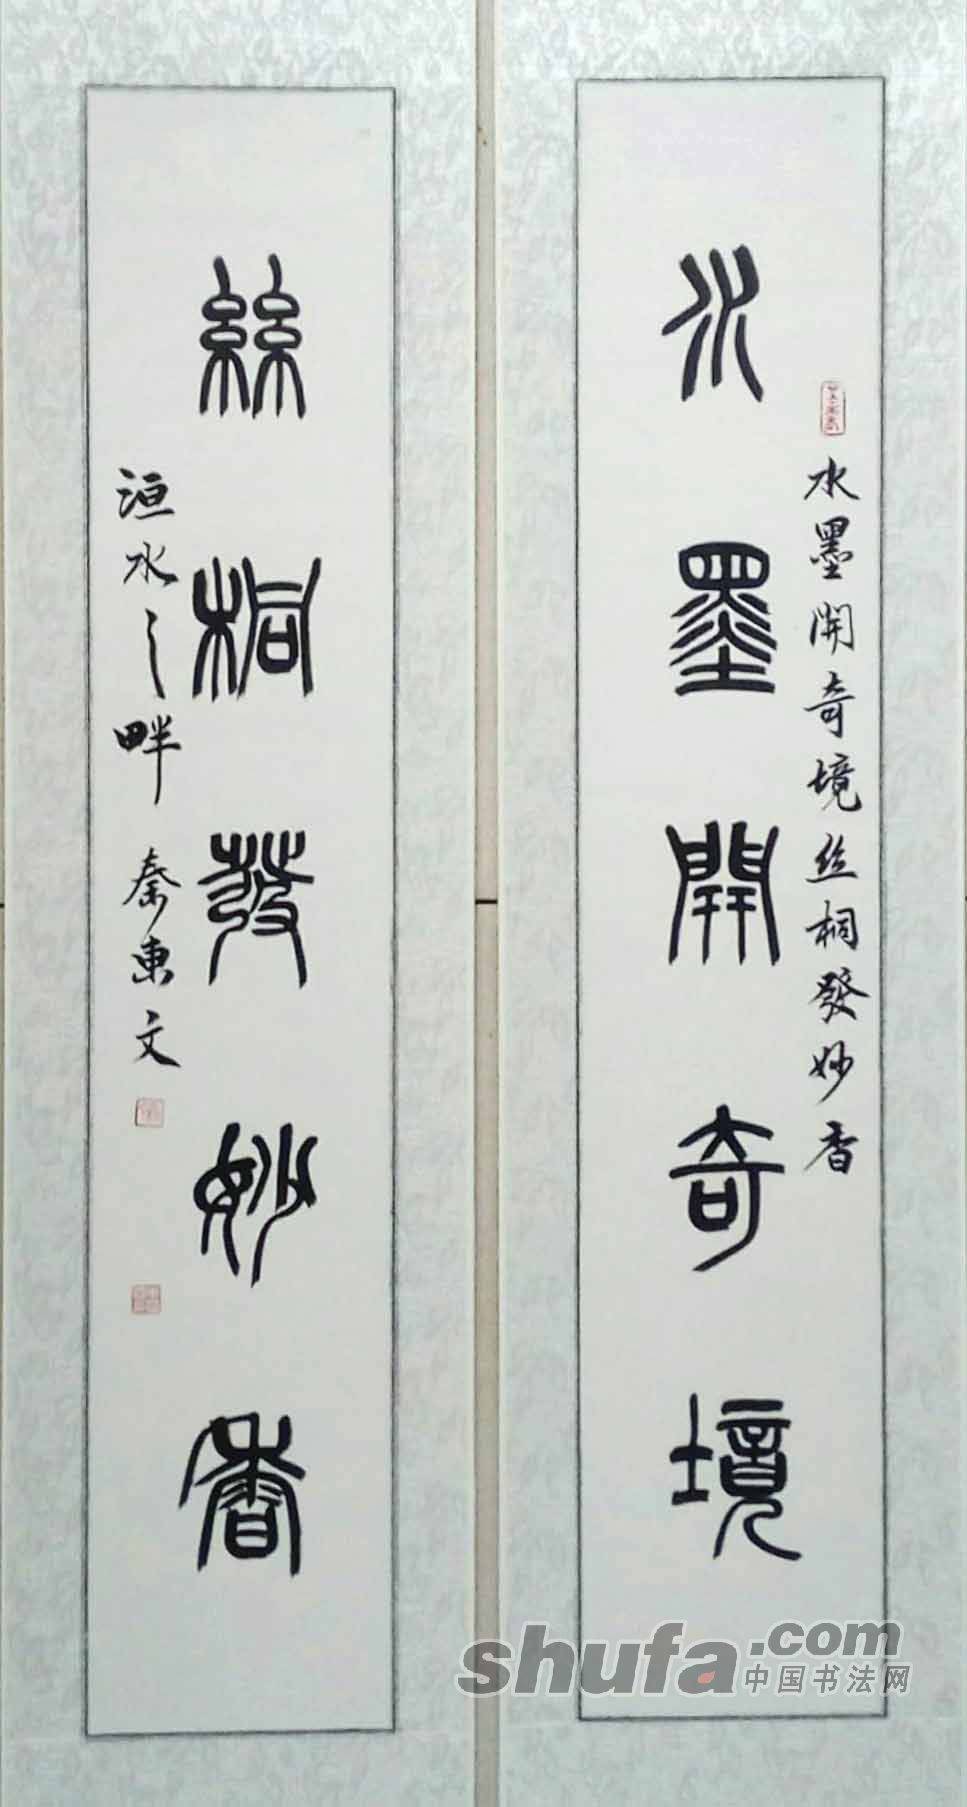 水墨開奇境
水墨開奇境丝桐發妙香
絲桐發妙香
洹水之畔 秦東文
shufa.com
中国书法网